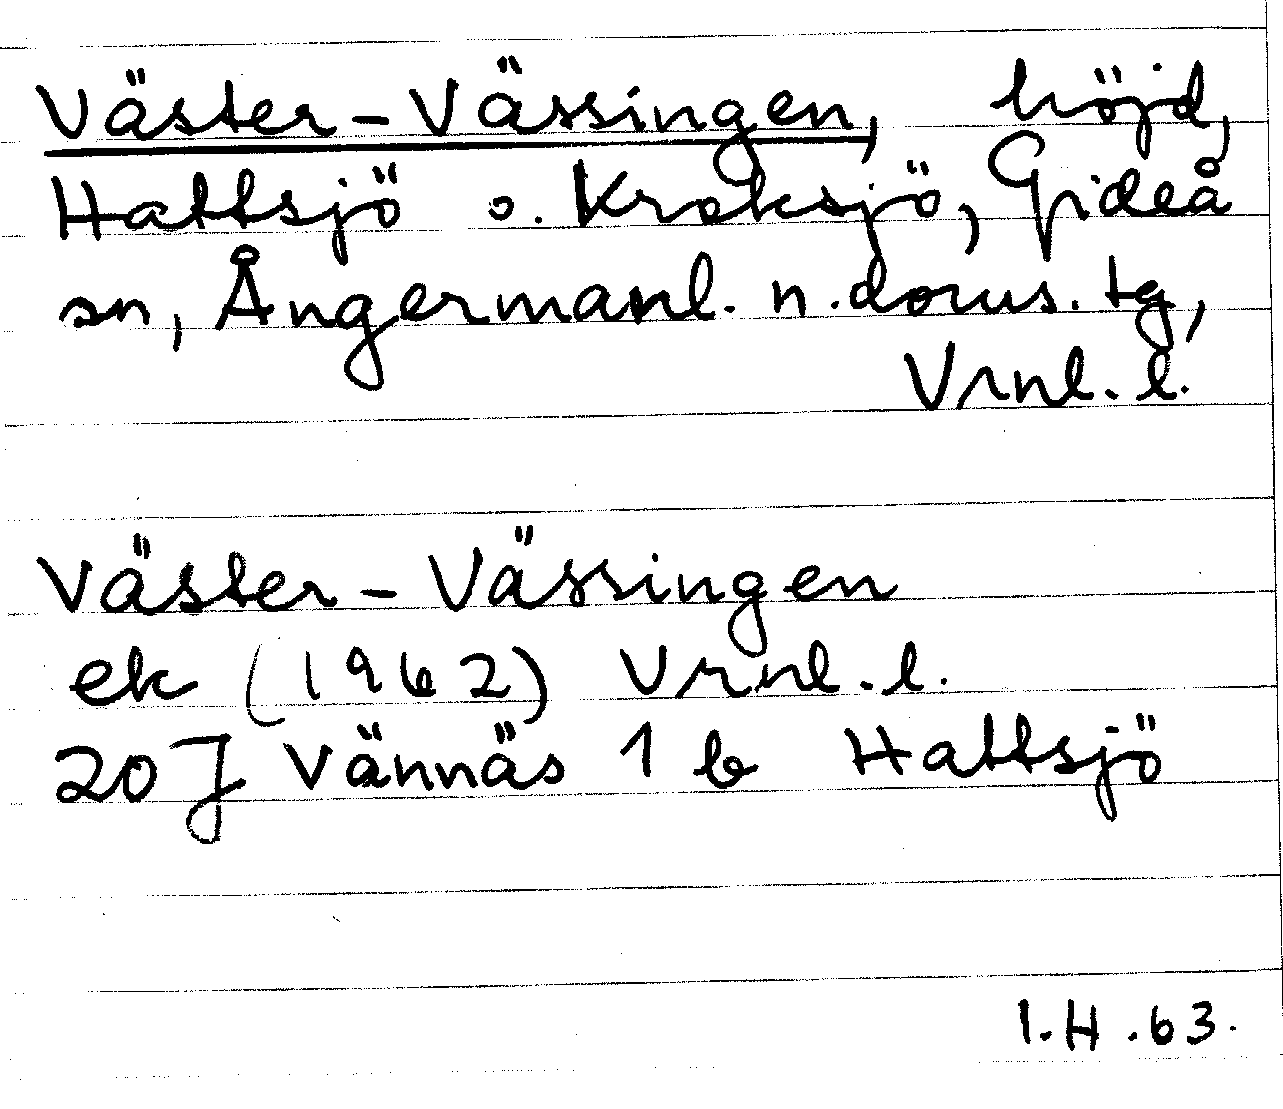 Väster-Vässingen, höjd,
Hattsjö o. Kroksjö, Gideå
sn, Ångermanl. n. doms. tg,
Vrnl. l.
Väster-Vässingen
ek (1962) Vrnl. l.
20 J Vännäs 1 b Hattsjö
I. H. 63.